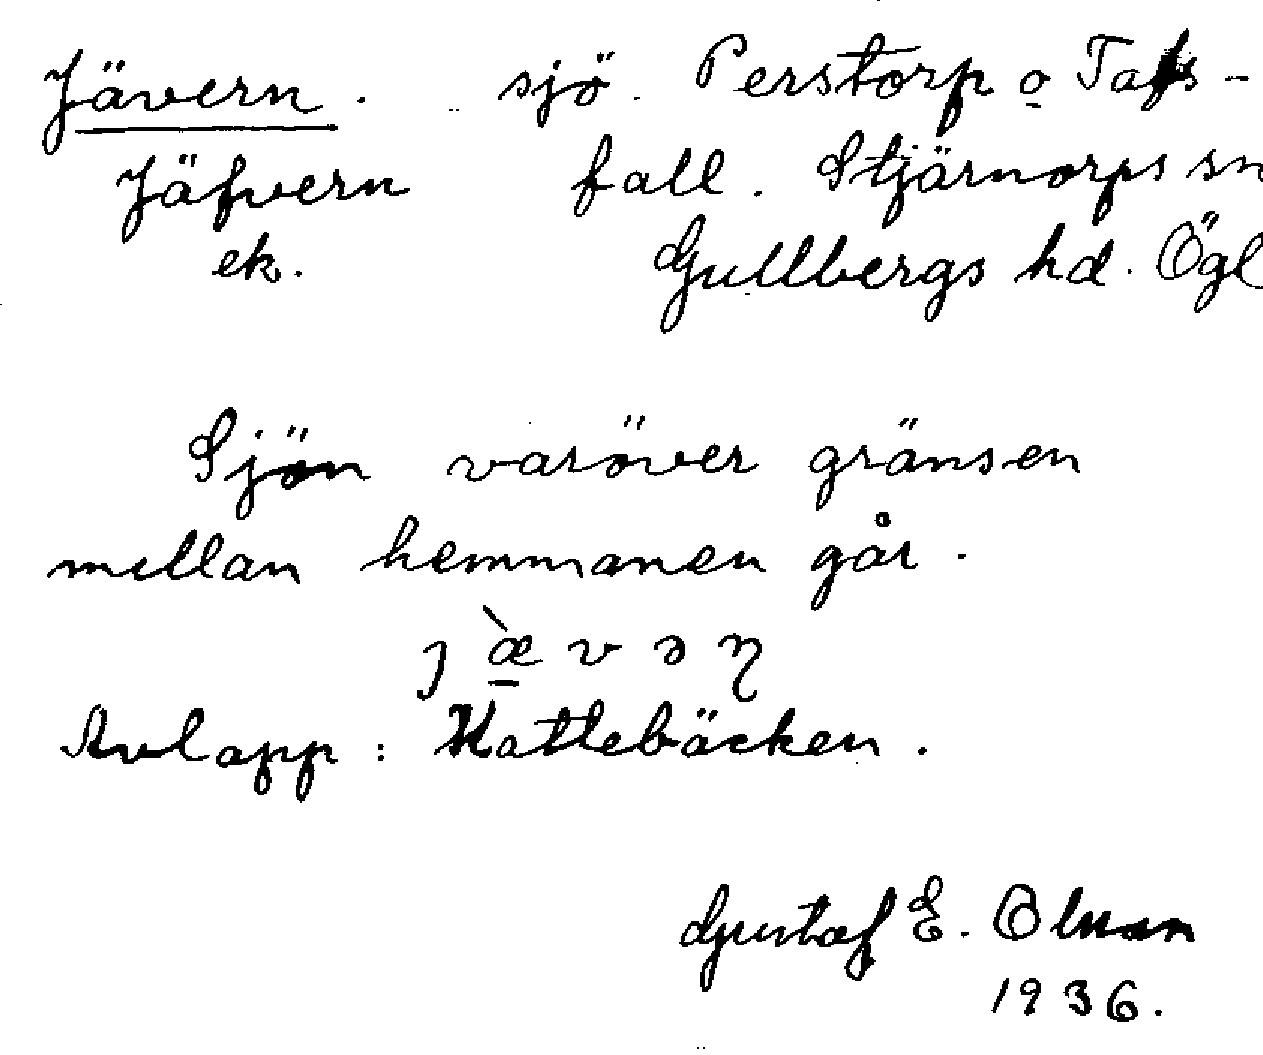 Jävern. sjö. Perstorp o Tafs-
Jäfvern fall. Stjärnorps sn
ek. Gullbergs hd. Ögl
Sjön varöver gränsen
mellan hemmanen går.
Avlopp: Kattlebäcken.
Gustaf E. Olsson
1936.